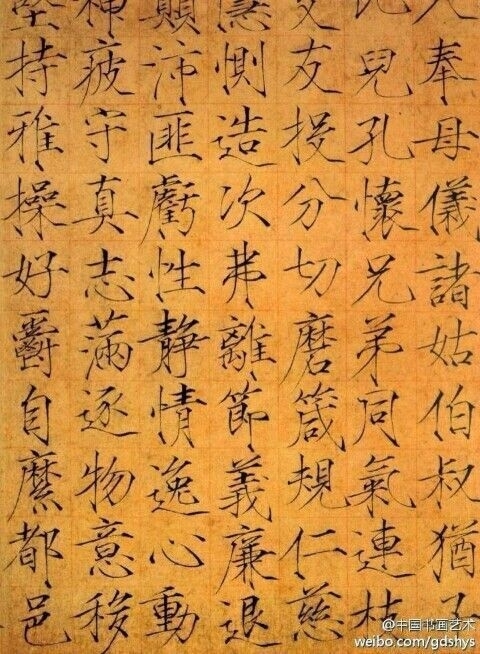 入奉母儀諸姑伯叔猶子
比兒孔懷兄弟同氣連枝
交友投分切磨箴規仁慈
隱惻造次弗離節義廉退
顛沛匪虧性靜情逸心動
神疲守真志滿逐物意移
堅持雅操好爵自縻都邑
@中国书画艺术
weibo.com/gdshys